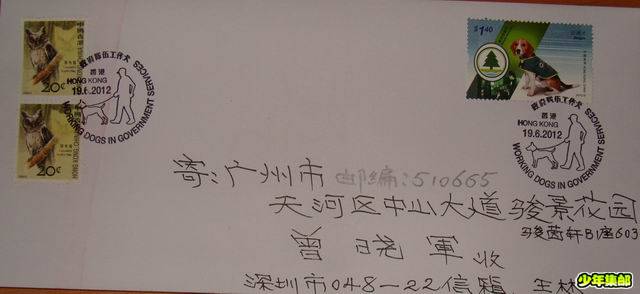 20¢
20¢
$1.40
政府部门工作犬
香港
HONG KONG
19.6.2012
WORKING DOGS IN GOVERNMENT SERVICES
香港
HONG KONG
19.6.2012
WORKING DOGS IN GOVERNMENT SERVICES
寄:广州市 邮编:510665
天河区中山大道骏景花园
骏茵轩B1座603
曾晓軍 收
深圳市048-22信箱 王林
少年集邮